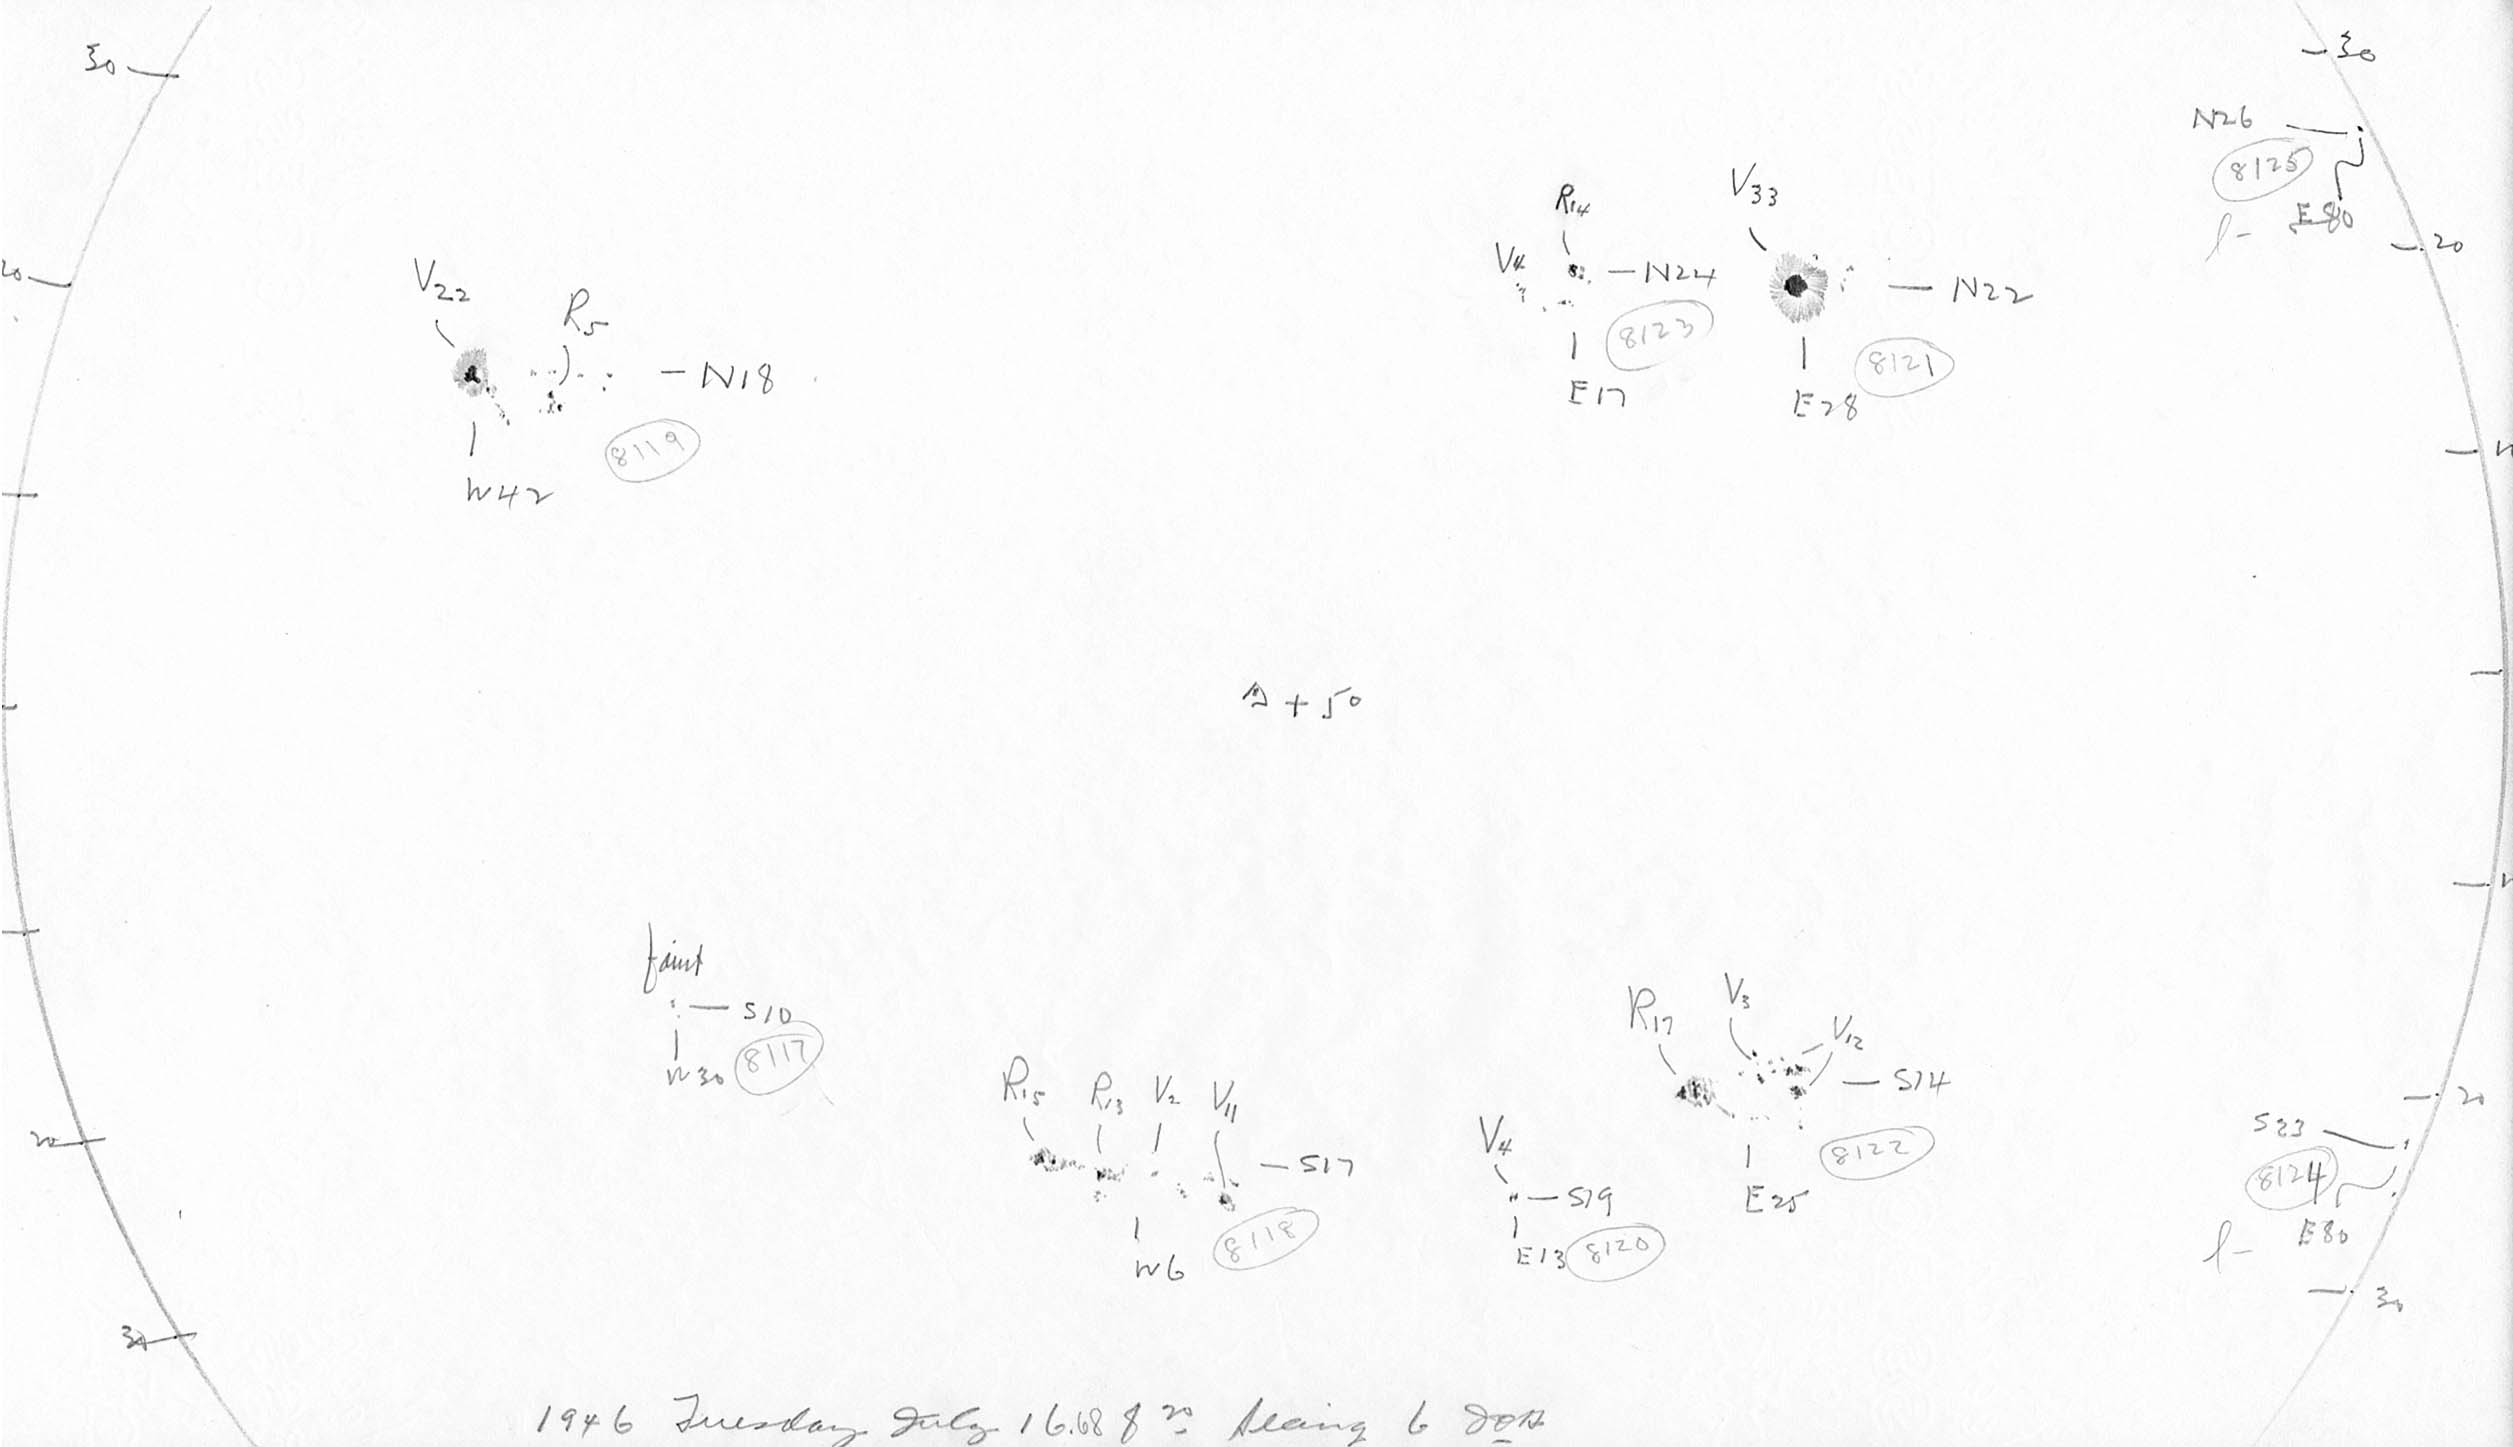 30
30
N26
8125
E80
l-
20
20
V33
R14
V4
N24
8123
E17
N22
8121
E28
V22
R5
N18
8119
W42
+5°
faint
S10
W30
8117
R15
R13
V2
V11
S17
W6
8118
V4
S19
E13
8120
R17
V3
V12
S14
8122
E25
20
20
S23
8124
E80
l-
30
30
1946 Tuesday July 16.68 8 20 Seeing 6